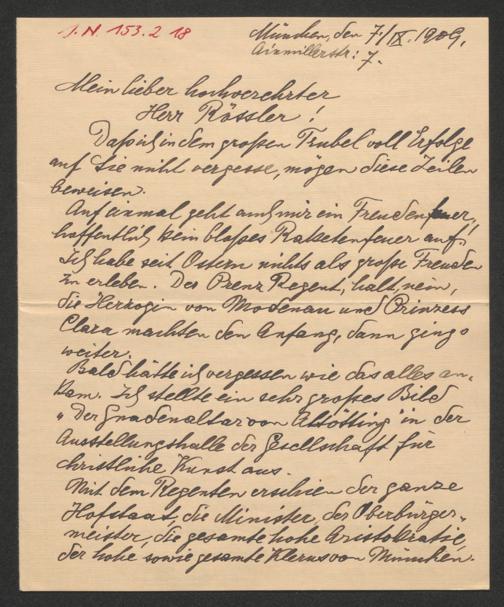 J. N. 153.218
München, den 7./IX. 1909.
Ainmillerstr: 7.
Mein lieber hochverehrter
Herr Rössler!
Daß ich in dem großen Trubel voll Erfolge
auf Sie nicht vergesse, mögen diese Zeilen
beweisen.
Auf einmal geht auch mir ein Freudenfeuer,
hoffentlich kein bloßes Raketenfeuer auf.
Ich habe seit Ostern nichts als große Freuden
zu erleben. Der Prinz Regent, halt, nein,
die Herzogin von Modena und Prinzess
Clara machten den Anfang, dann gings
weiter.
Bald hätte ich vergessen wie das alles an-
kam. Ich stellte ein sehr großes Bild
"Der Gnadenaltar von Altötting" in der
Ausstellungshalle der Gesellschaft für
christliche Kunst aus.
Mit dem Regenten erschien der ganze
Hofstaat, die Minister, der Oberbürger-
meister, die gesamte hohe Aristokratie,
der hohe sowie gesamte Klerus von München.